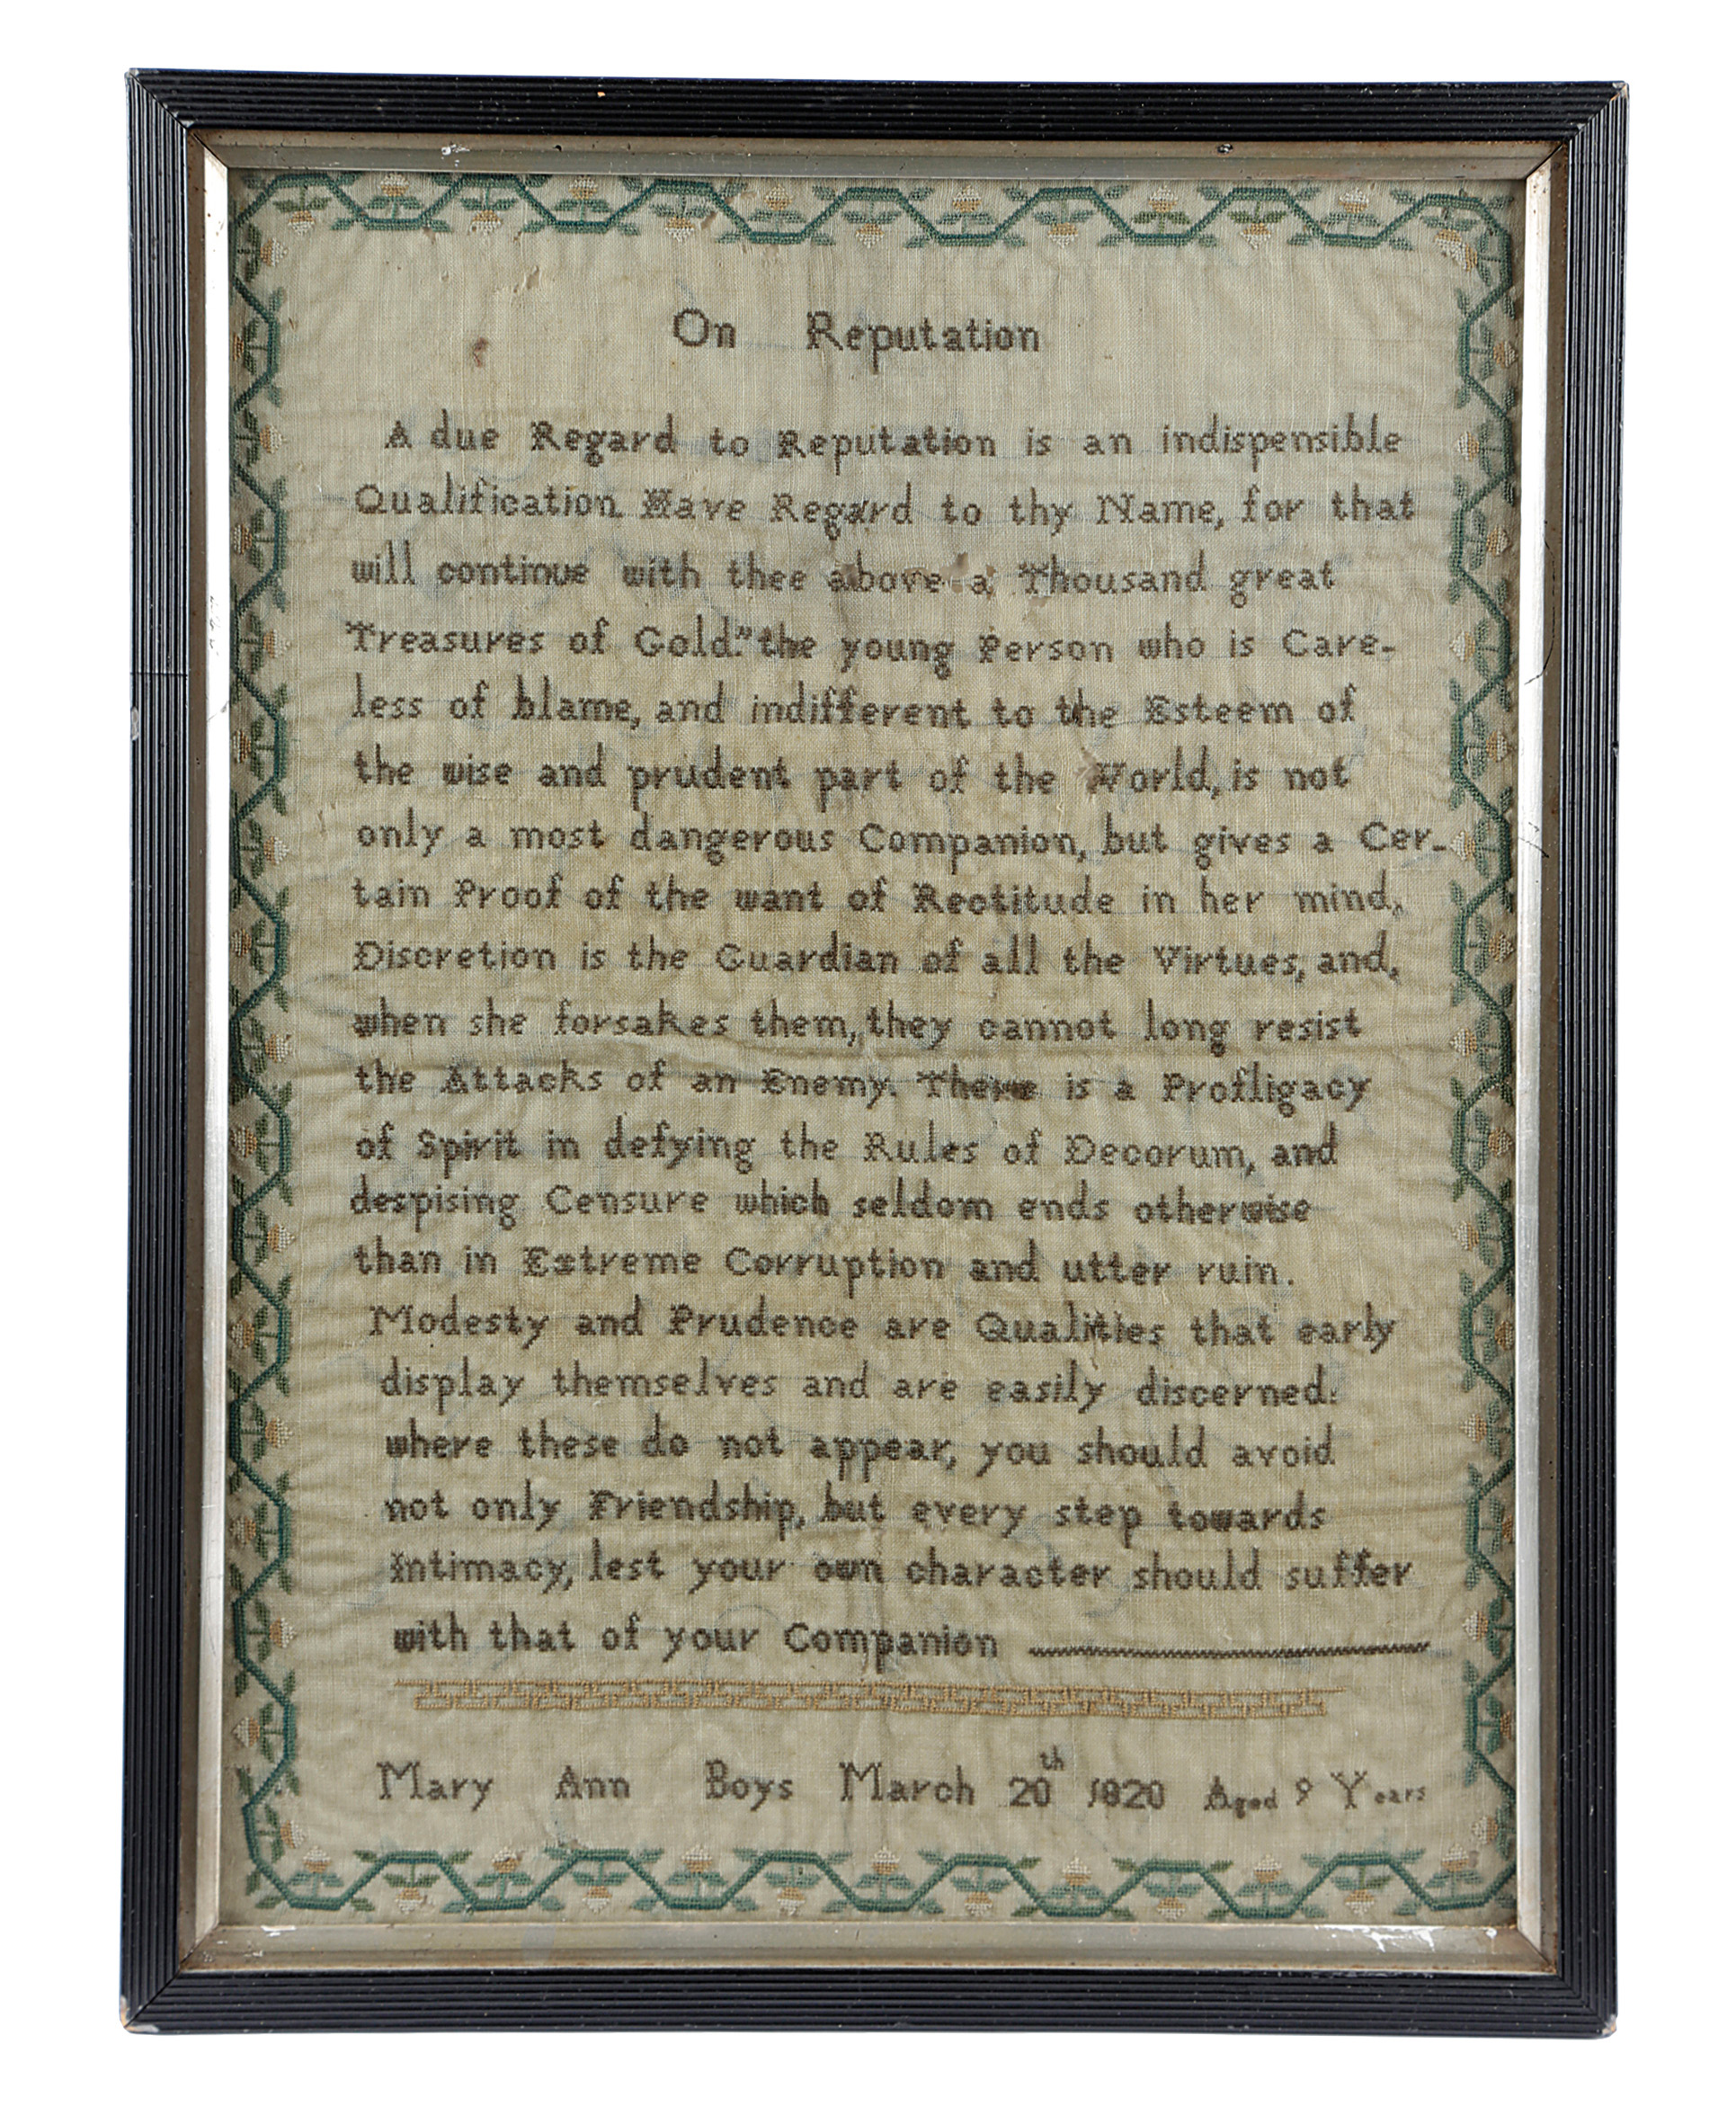 On Reputation
A due Regard to Reputation is an indispensible
Qualification Have Regard to thy Name, for that
will continue with thee above a Thousand great
Treasures of Gold." the young Person who is Care-
less of blame, and indifferent to the Esteem of
the wise and prudent part of the World, is not
only a most dangerous Companion, but gives a Cer-
tain Proof of the want of Rectitude in her mind,
Discretion is the Guardian of all the Virtues, and,
when she forsakes them, they cannot long resist
the Attacks of an Enemy. There is a Profligacy
of Spirit in defying the Rules of Decorum, and
despising Censure which seldom ends otherwise
than in Extreme Corruption and utter ruin.
Modesty and Prudence are Qualities that early
display themselves and are easily discerned:
where these do not appear, you should avoid
not only Friendship, but every step towards
Intimacy, lest your own character should suffer
with that of your Companion
Mary Ann Boys March 20th 1820 Aged 9 Years